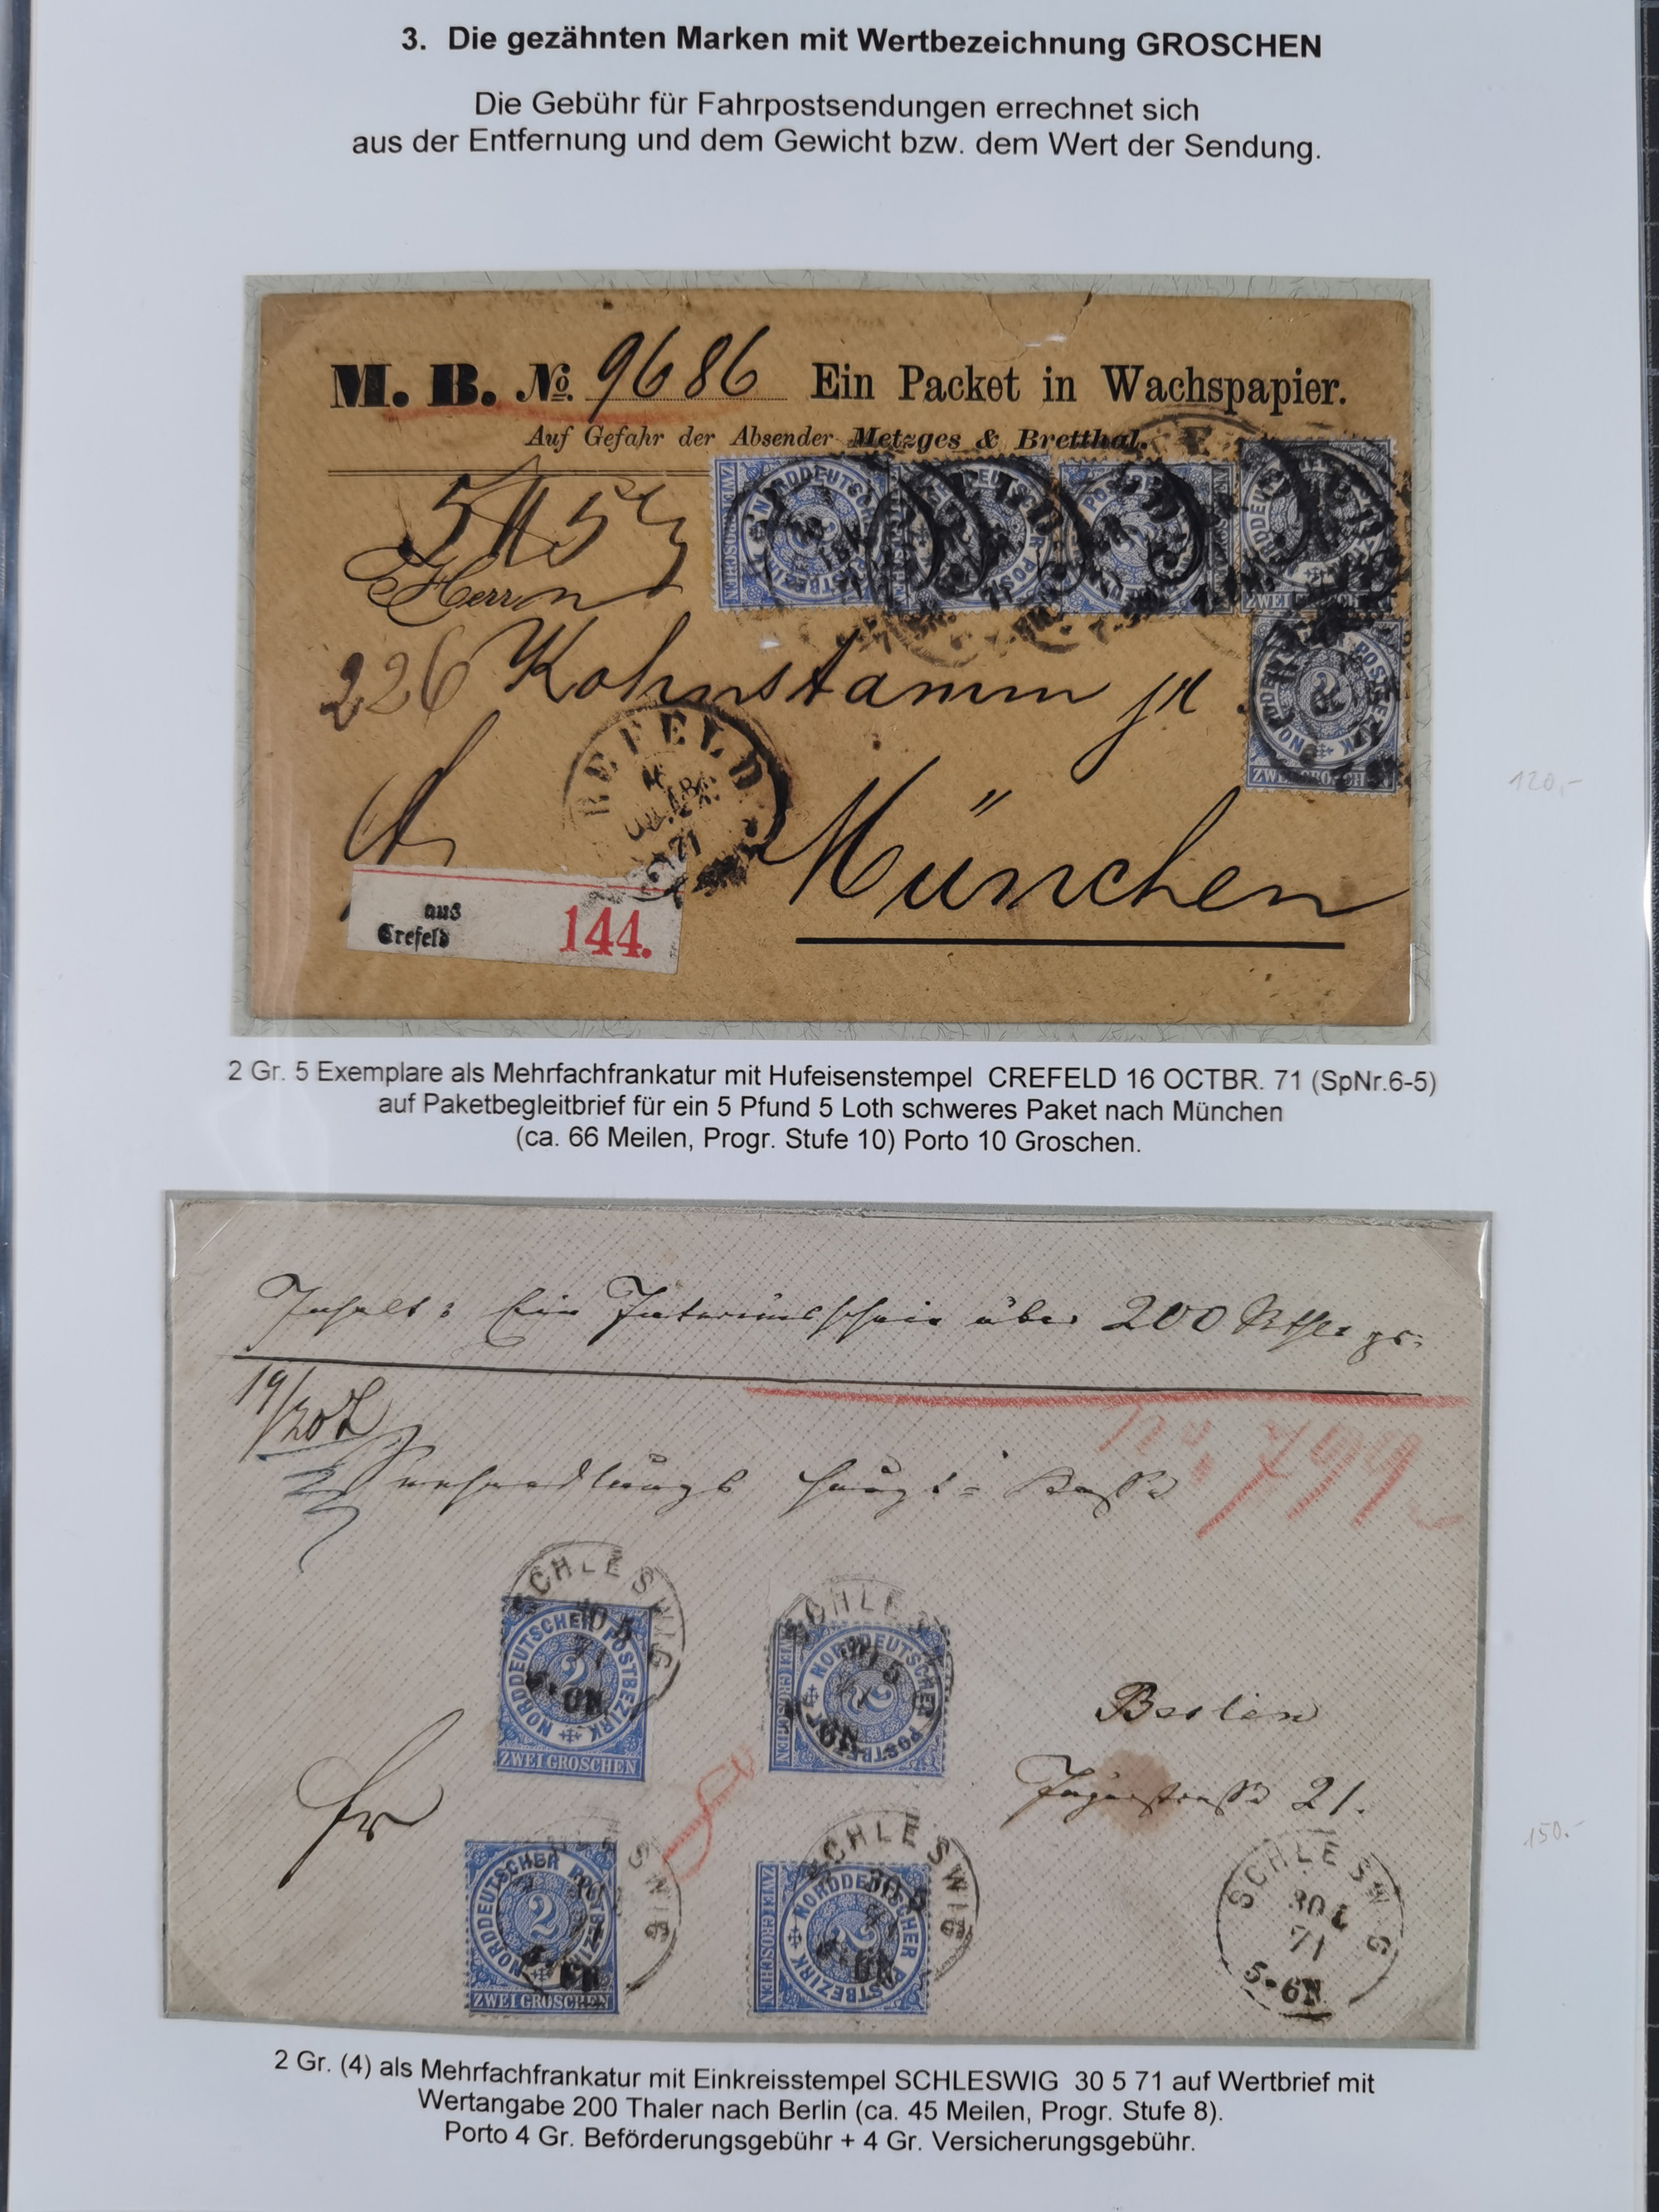 3. Die gezähnten Marken mit Wertbezeichnung GROSCHEN
Die Gebühr für Fahrpostsendungen errechnet sich
aus der Entfernung und dem Gewicht bzw. dem Wert der Sendung.
M. B. No. 9686 Ein Packet in Wachspapier.
Auf Gefahr der Absender Metzges & Bretthal.
Herrn
226 Kohnstamm jr.
München
CREFELD
aus
Crefeld
144.
120,-
2 Gr. 5 Exemplare als Mehrfachfrankatur mit Hufeisenstempel CREFELD 16 OCTBR. 71 (SpNr.6-5)
auf Paketbegleitbrief für ein 5 Pfund 5 Loth schweres Paket nach München
(ca. 66 Meilen, Progr. Stufe 10) Porto 10 Groschen.
Inhalt: Ein Interimsschein über 200
Seehandlungs Haupt-Kasse
SCHLESWIG
NORDDEUTSCHER POSTBEZIRK
2
ZWEI GROSCHEN
SCHLESWIG
NORDDEUTSCHER POSTBEZIRK
2
ZWEI GROSCHEN
Berlin
Jägerstraße 21.
NORDDEUTSCHER POSTBEZIRK
2
ZWEI GROSCHEN
SCHLESWIG
NORDDEUTSCHER POSTBEZIRK
2
ZWEI GROSCHEN
SCHLESWIG
30 5
71
5-6N
150.-
2 Gr. (4) als Mehrfachfrankatur mit Einkreisstempel SCHLESWIG 30 5 71 auf Wertbrief mit
Wertangabe 200 Thaler nach Berlin (ca. 45 Meilen, Progr. Stufe 8).
Porto 4 Gr. Beförderungsgebühr + 4 Gr. Versicherungsgebühr.